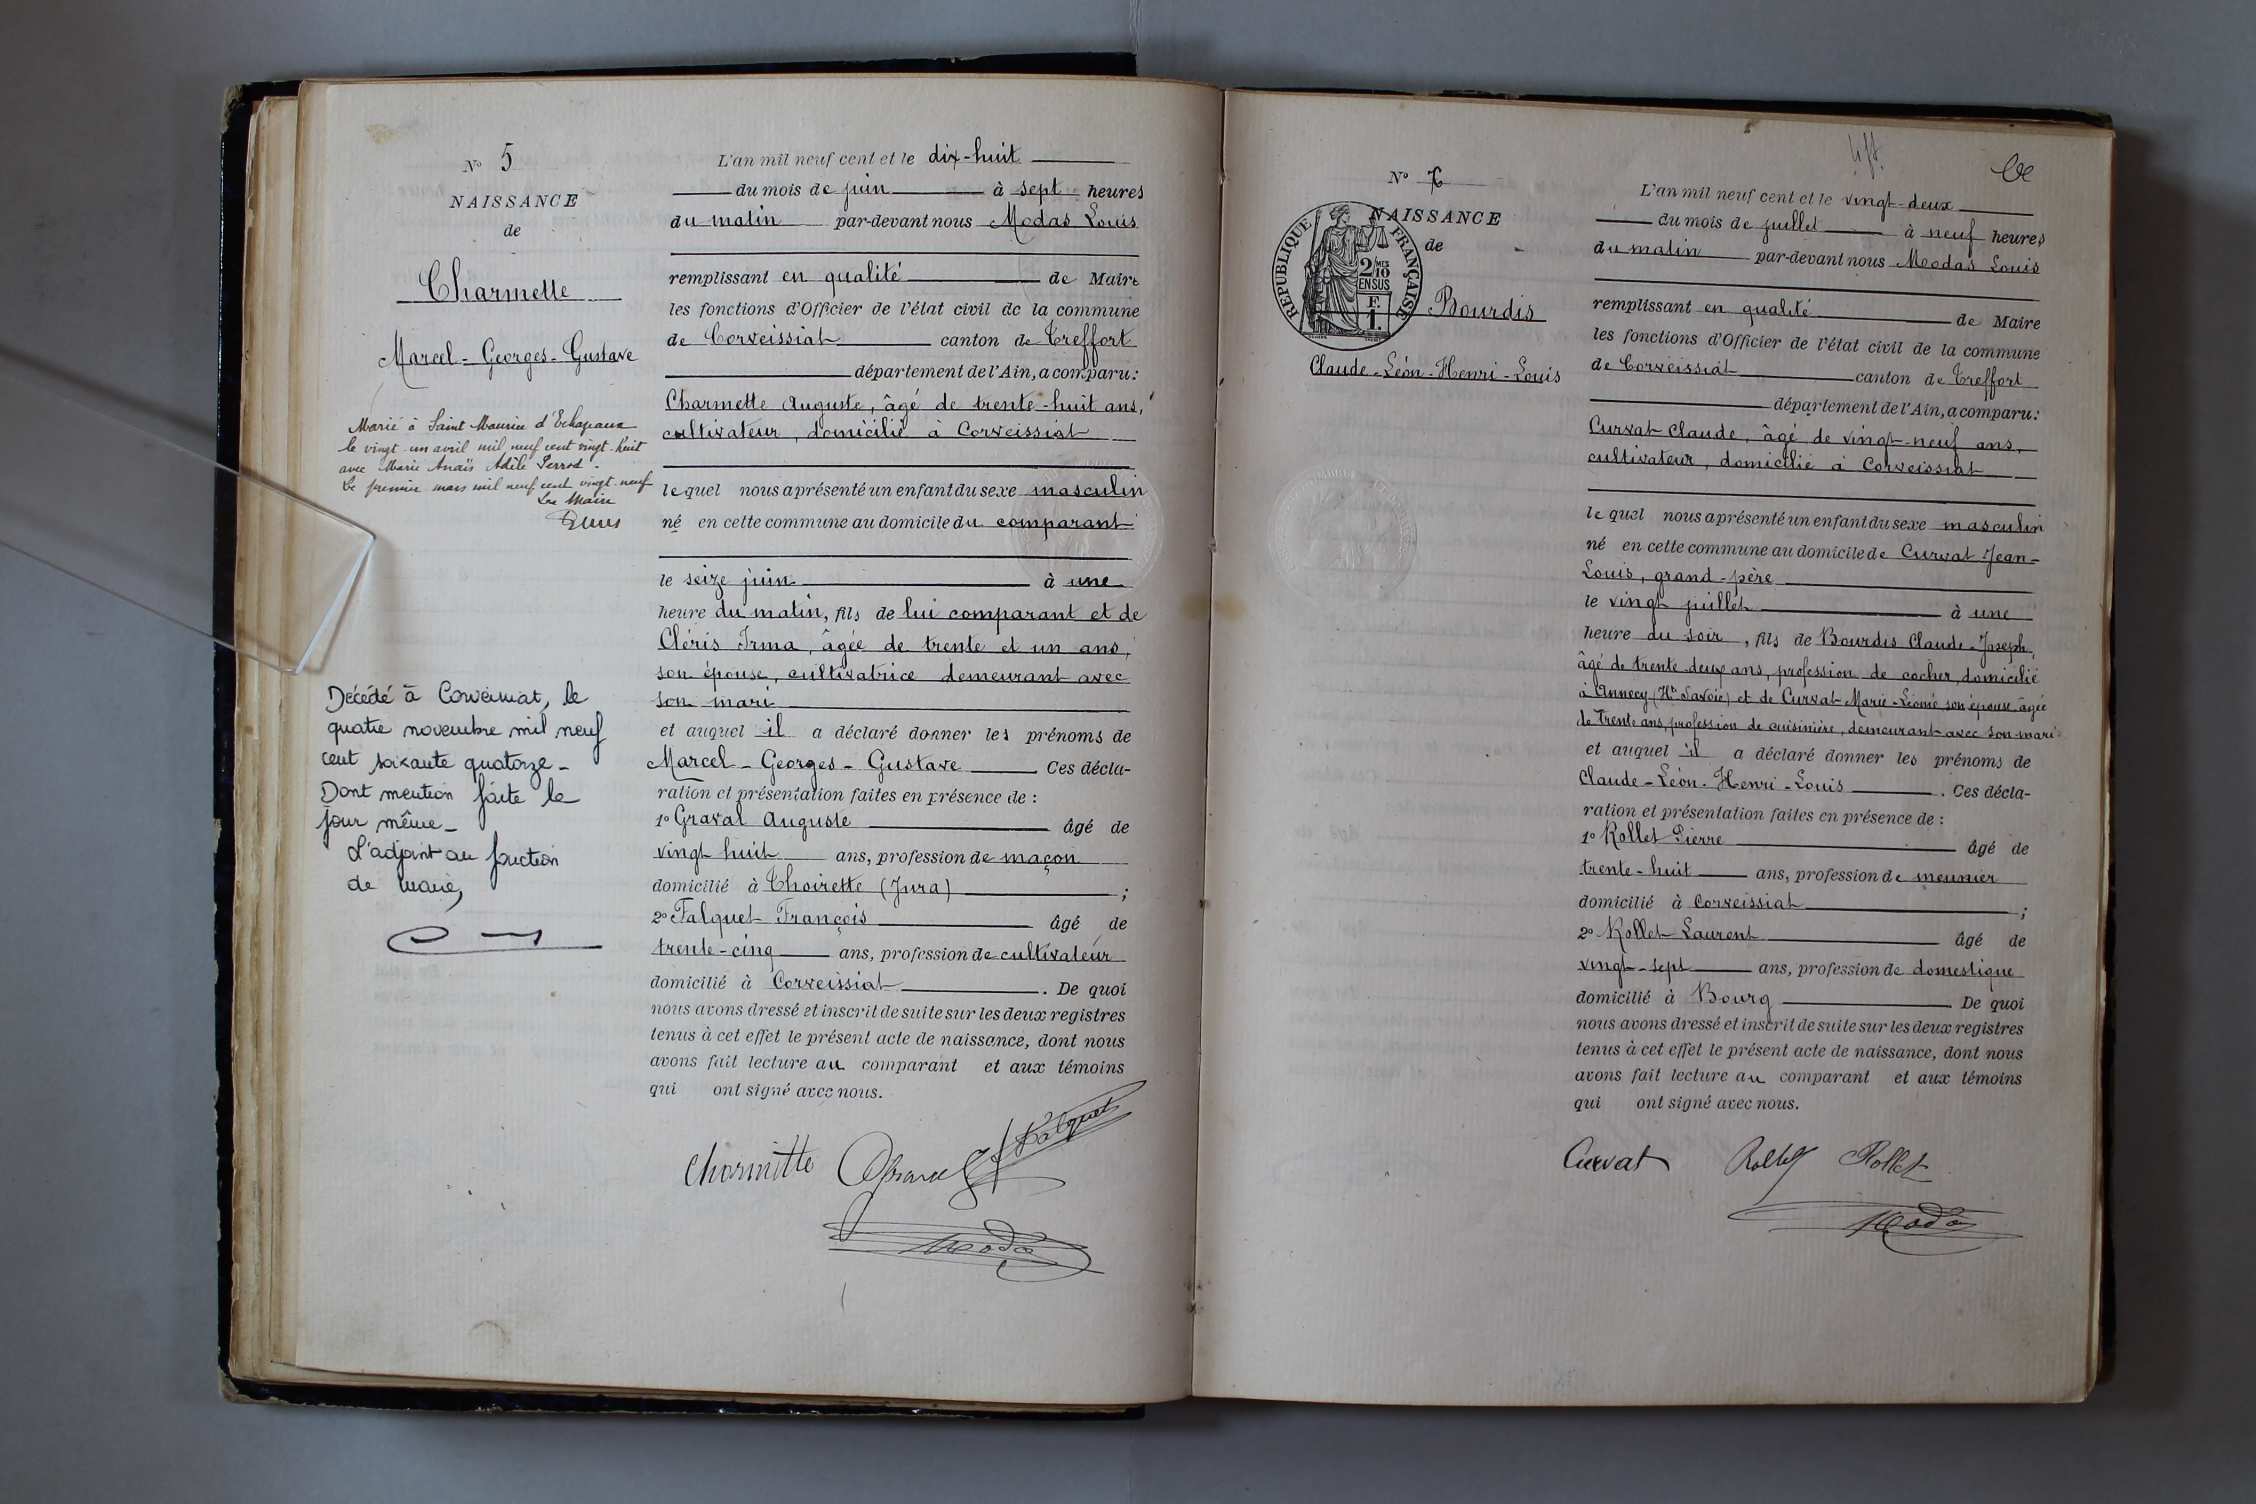 N° 5
NAISSANCE
de
Charmette
Marcel - Georges - Gustave
Marié à Saint Maurice d'Echazeaux
le vingt-un avril mil neuf cent vingt-huit
avec Marie Anaïs Adèle Perrod -
Le premier mars mil neuf cent vingt-neuf
Le Maire
Décédé à Corveissiat, le
quatre novembre mil neuf
cent soixante quatorze -
Dont mention faite le
jour même -
L'adjoint au fonction
de maire,
L'an mil neuf cent et le dix-huit
du mois de juin à sept heures
du matin par-devant nous Modas Louis
remplissant en qualité de Maire
les fonctions d'Officier de l'état civil de la commune
de Corveissiat canton de Treffort
département de l'Ain, a comparu:
Charmette Auguste, âgé de trente-huit ans,
cultivateur, domicilié à Corveissiat
lequel nous a présenté un enfant du sexe masculin
né en cette commune au domicile du comparant
le seize juin à une
heure du matin, fils de lui comparant et de
Cléris Irma, âgée de trente et un ans,
son épouse, cultivatrice demeurant avec
son mari
et auquel il a déclaré donner les prénoms de
Marcel - Georges - Gustave Ces décla-
ration et présentation faites en présence de :
1° Graval Auguste âgé de
vingt huit ans, profession de maçon
domicilié à Thoirette (Jura) ;
2° Falquet François âgé de
trente-cinq ans, profession de cultivateur
domicilié à Corveissiat . De quoi
nous avons dressé et inscrit de suite sur les deux registres
tenus à cet effet le présent acte de naissance, dont nous
avons fait lecture au comparant et aux témoins
qui ont signé avec nous.
Charmitte Graval Falquet
Modas
N°
RÉPUBLIQUE FRANÇAISE
2/10 MES
EN SUS
F.
1.
NAISSANCE
de
Bourdis
Claude - Léon - Henri - Louis
L'an mil neuf cent et le vingt-deux
du mois de juillet à neuf heures
du matin par-devant nous Modas Louis
remplissant en qualité de Maire
les fonctions d'Officier de l'état civil de la commune
de Corveissiat canton de Treffort
département de l'Ain, a comparu:
Curvat Claude, âgé de vingt-neuf ans,
cultivateur, domicilié à Corveissiat
lequel nous a présenté un enfant du sexe masculin
né en cette commune au domicile de Curvat Jean-
Louis, grand-père
le vingt juillet à une
heure du soir, fils de Bourdis Claude-Joseph,
âgé de trente deux ans, profession de cocher, domicilié
à Annecy (Hte Savoie) et de Curvat Marie-Léonie son épouse âgée
de trente ans, profession de cuisinière, demeurant avec son mari
et auquel il a déclaré donner les prénoms de
Claude - Léon - Henri - Louis . Ces décla-
ration et présentation faites en présence de :
1° Rollet Pierre âgé de
trente-huit ans, profession de meunier
domicilié à Corveissiat ;
2° Rollet Laurent âgé de
vingt-sept ans, profession de domestique
domicilié à Bourg De quoi
nous avons dressé et inscrit de suite sur les deux registres
tenus à cet effet le présent acte de naissance, dont nous
avons fait lecture au comparant et aux témoins
qui ont signé avec nous.
Curvat Rollet Rollet
Modas